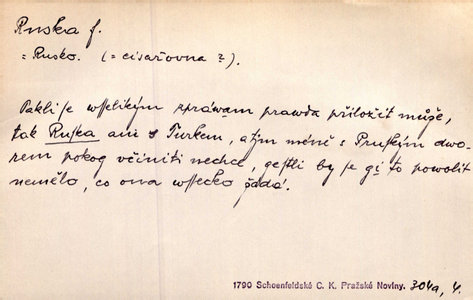 Ruska f.
= Rusko. (= císařovna ?).
Pakli se wsselikým zpráwam prawda přiložit může,
tak Ruska ani s Turkem, a tjm méně s Pruským dwo-
rem pokog včiniti nechce, gestli by se gi to powolit
nemělo, co ona wssecko žádá.
1790 Schoenfeldské C. K. Pražské Noviny. 304a, 4.